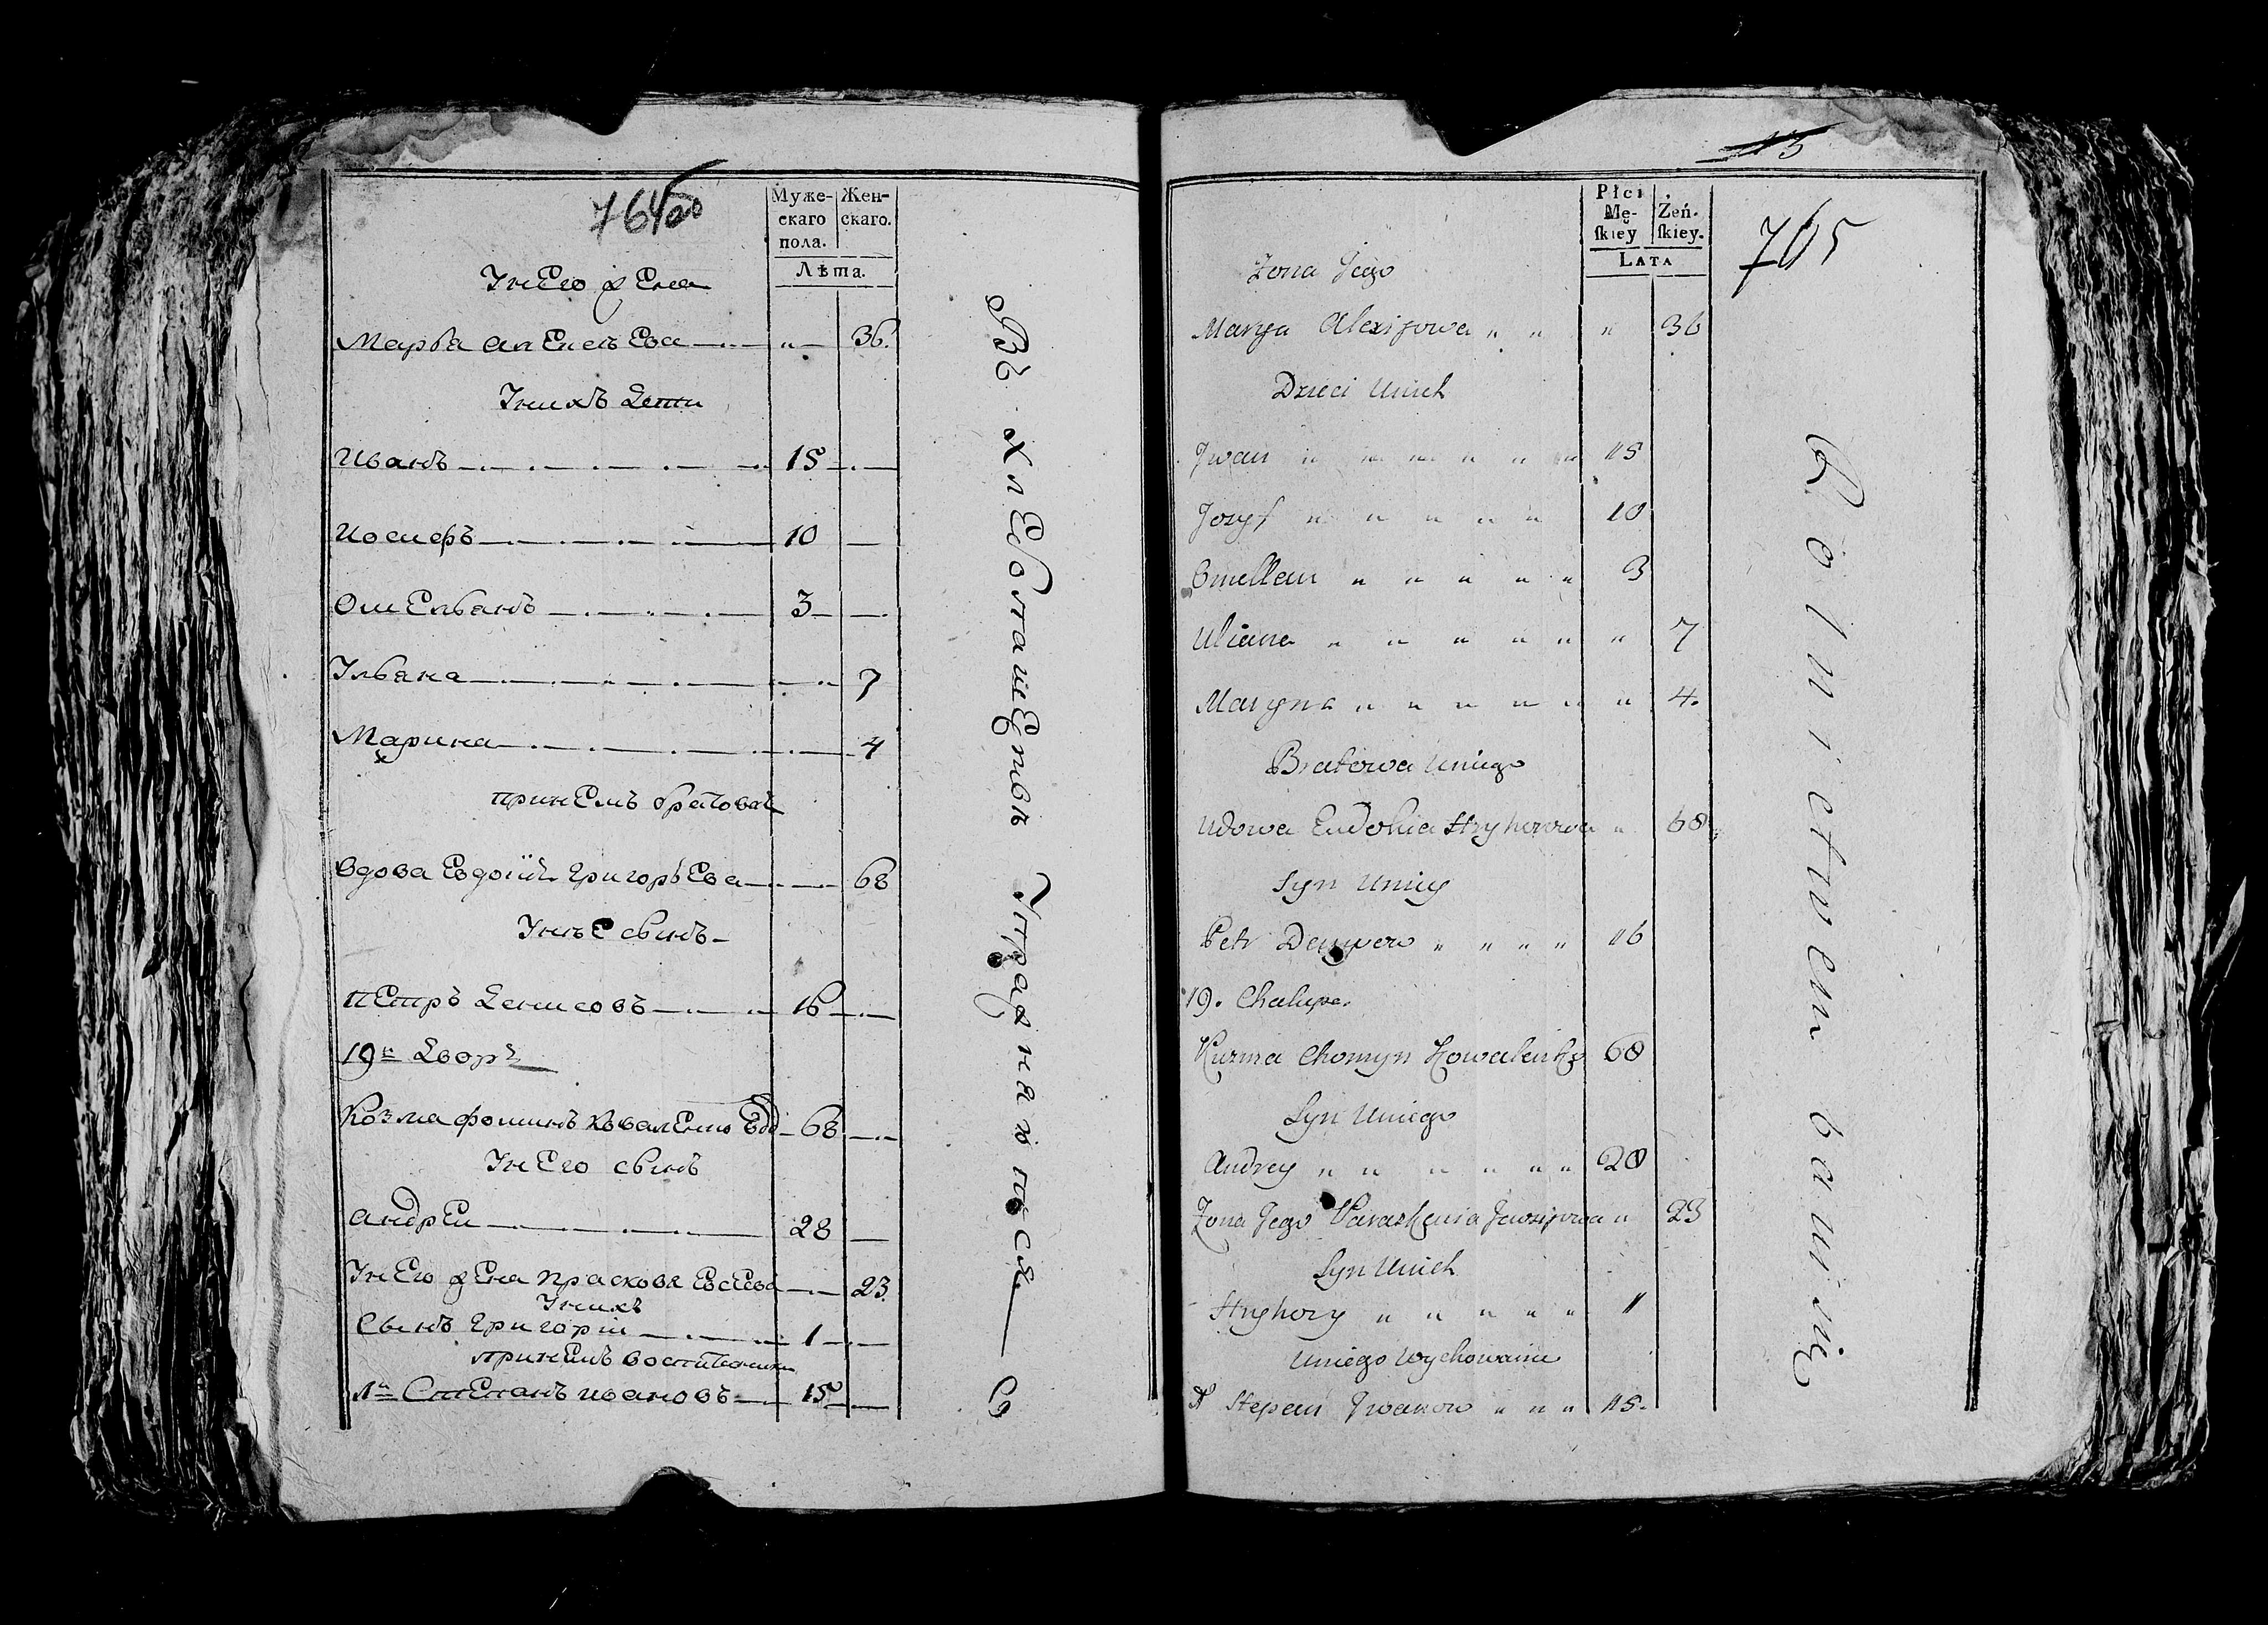 764об
Муже-
скаго
пола.
Жен-
скаго.
Лѣта.
Унего жена
Марья алексѣева 36.
Унихъ дети
Иванъ 15
Иосифъ 10
Омельянъ 3
Ульяна 7
Марина 4
принемъ братовая
вдова Евдокия григорьева 68
Унее сынъ
петръ денисовъ 16
19й дворъ
Козма фоминъ коваленко 68
Унего сынъ
андреи 28
Унего жена прасковя Евсеева 23
Унихъ
Сынъ григории 1
принемъ воспитанникъ
Степанъ ивановъ 15
Въ хлебопашенныхъ
Упражняютъся
13
765
Płci
Mę-
ſkiey
Żeń-
ſkiey.
LATA
Zona Jego
Marya Alexijowa " " " 36
Dzieci Unich
Jwan " " " " " " 15
Jozyf " " " " " 10
Omellan " " " " " 3
Uliana " " " " " " 7
Maryna " " " " " " 4.
Bratowa Uniego
Udowa Eudokia Hryhorowa " 68
Syn Uniey
Petr Denysow " " " " 16
19. Chalupa.
Kuzma Chomyn Kowalenko 68
Syn Uniego
Andrey " " " " " " 28
Zona Jego Paraskewia Jewsijowa " 23
Syn Unich
Hryhory " " " " " 1
Uniego Wychowaniec
Stepan Jwanow " " " 15.
Rolnictwem bawią